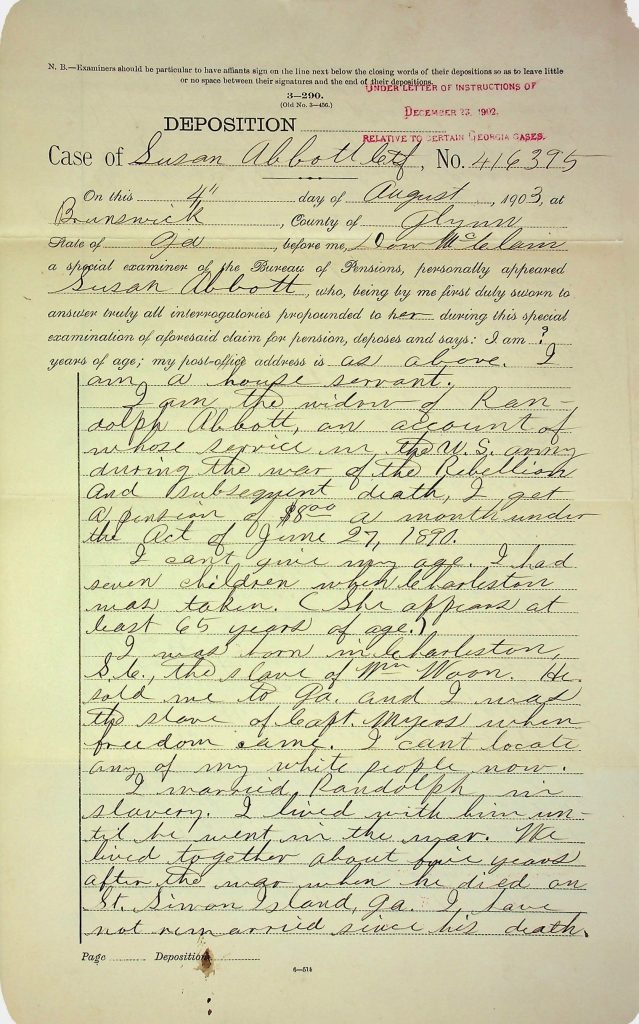 N. B.—Examiners should be particular to have affiants sign on the line next below the closing words of their depositions so as to leave little
or no space between their signatures and the end of their depositions.
UNDER LETTER OF INSTRUCTIONS OF
3—290.
(Old No. 3—456.)
DECEMBER 23, 1902,
DEPOSITION
RELATIVE TO CERTAIN GEORGIA CASES.
Case of Susan Abbott ctf, No. 416395
On this 4" day of August, 1903, at
Brunswick, County of Glynn
State of Ga, before me, Dow McClain
a special examiner of the Bureau of Pensions, personally appeared
Susan Abbott, who, being by me first duly sworn to
answer truly all interrogatories propounded to her during this special
examination of aforesaid claim for pension, deposes and says: I am ?
years of age; my post-office address is as above. I
am a house servant.
I am the widow of Ran-
dolph Abbott, on account of
whose service in the U.S. army
during the war of the Rebellion
and subsequent death, I get
a pension of $8.00 a month under
the Act of June 27, 1890.
I cant give my age. I had
seven children when Charleston
was taken. (She appears at
least 65 years of age.)
I was born in Charleston,
S.C., the slave of Wm Woon. He
sold me to Ga. and I was
the slave of Capt. Myers when
freedom came. I cant locate
any of my white people now.
I married Randolph in
slavery. I lived with him un-
til he went in the war. We
lived together about five years
after the war when he died on
St. Simon Island, Ga. I have
not remarried since his death.
Page Deposition
6—514